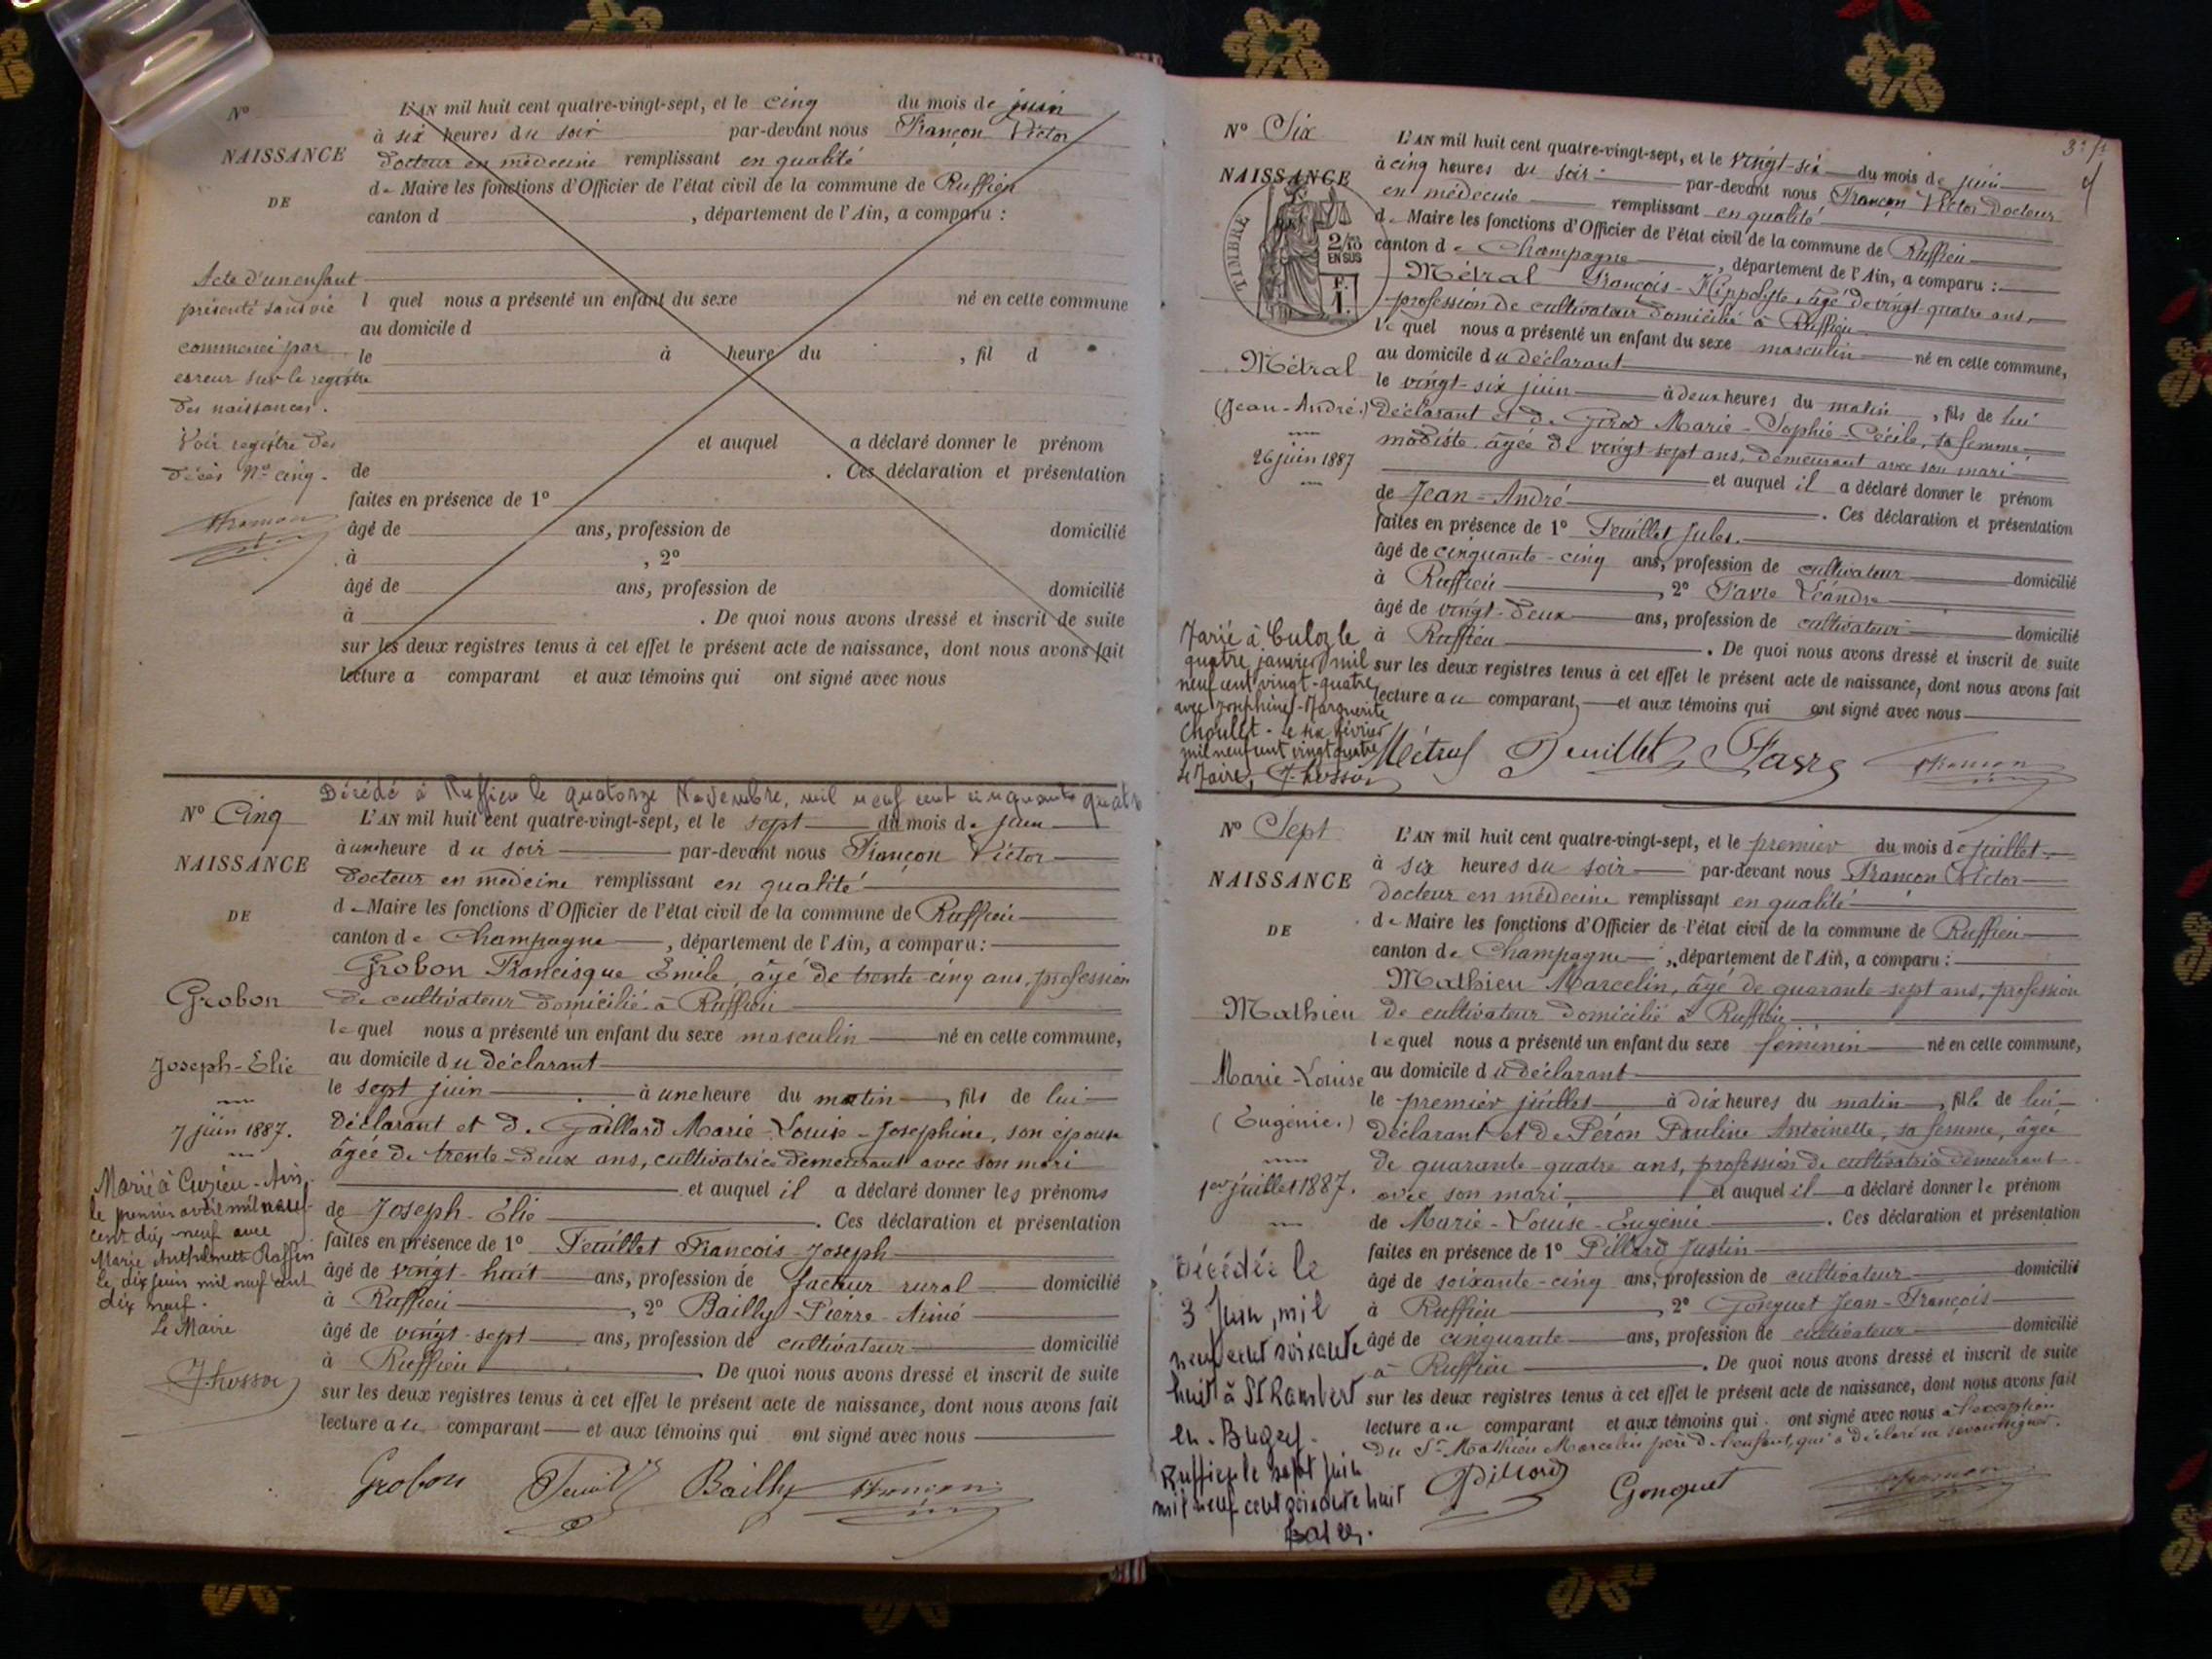 N°
NAISSANCE
DE
Acte d'un enfant
présenté sans vie
commencé par
erreur sur le registre
des naissances.
Voir registre des
décès N° cinq.
L'AN mil huit cent quatre-vingt-sept, et le cinq du mois de juin
à six heures du soir par-devant nous Françon Victor
docteur en médecine remplissant en qualité
de Maire les fonctions d'Officier de l'état civil de la commune de Ruffieu
canton d , département de l'Ain, a comparu :
l quel nous a présenté un enfant du sexe né en cette commune
au domicile d
le à heure du , fil d
et auquel a déclaré donner le prénom
de . Ces déclaration et présentation
faites en présence de 1°
âgé de ans, profession de domicilié
à , 2°
âgé de ans, profession de domicilié
à . De quoi nous avons dressé et inscrit de suite
sur les deux registres tenus à cet effet le présent acte de naissance, dont nous avons fait
lecture a comparant et aux témoins qui ont signé avec nous
Décédé à Ruffieu le quatorze Novembre, mil neuf cent cinquante quatre
N° Cinq
NAISSANCE
DE
Grobon
Joseph-Elie
7 juin 1887.
Marié à Cuzieu - Ain,
le premier avril mil neuf
cent dix-neuf avec
Marie Anthelmette Raffin
le dix juin mil neuf cent
dix neuf.
Le Maire
L'AN mil huit cent quatre-vingt-sept, et le sept du mois de juin
à une heure du soir par-devant nous Françon Victor
docteur en médecine remplissant en qualité
de Maire les fonctions d'Officier de l'état civil de la commune de Ruffieu
canton de Champagne , département de l'Ain, a comparu :
Grobon Francisque Emile, âgé de trente cinq ans, profession
de cultivateur domicilié à Ruffieu
lequel nous a présenté un enfant du sexe masculin né en cette commune,
au domicile du déclarant
le sept juin à une heure du matin , fils de lui
déclarant et de Gaillard Marie-Louise-Josephine, son épouse
âgée de trente-deux ans, cultivatrice demeurant avec son mari
et auquel il a déclaré donner les prénoms
de Joseph-Elie . Ces déclaration et présentation
faites en présence de 1° Feuillet François-Joseph
âgé de vingt-huit ans, profession de facteur rural domicilié
à Ruffieu , 2° Bailly-Pierre-Aimé
âgé de vingt-sept ans, profession de cultivateur domicilié
à Ruffieu . De quoi nous avons dressé et inscrit de suite
sur les deux registres tenus à cet effet le présent acte de naissance, dont nous avons fait
lecture au comparant et aux témoins qui ont signé avec nous
Grobon Bailly
3e f.
N° Six
NAISSANCE
TIMBRE
2/10 EN SUS
F. 1.
Métral
(Jean-André.)
26 juin 1887
Marié à Culoz le
quatre janvier mil
neuf cent vingt-quatre
avec Joséphine-Marguerite
Choulet - le six février
mil neuf cent vingt quatre
Le Maire,
L'AN mil huit cent quatre-vingt-sept, et le vingt-six du mois de juin
à cinq heures du soir par-devant nous Françon Victor docteur
en médecine remplissant en qualité
de Maire les fonctions d'Officier de l'état civil de la commune de Ruffieu
canton de Champagne , département de l'Ain, a comparu :
Métral François-Hippolyte, âgé de vingt-quatre ans,
profession de cultivateur domicilié à Ruffieu
lequel nous a présenté un enfant du sexe masculin né en cette commune,
au domicile du déclarant
le vingt-six juin à deux heures du matin , fils de lui
déclarant et de Girod Marie-Sophie-Cécile, sa femme,
modiste âgée de vingt sept ans, demeurant avec son mari
et auquel il a déclaré donner le prénom
de Jean-André . Ces déclaration et présentation
faites en présence de 1° Feuillet Jules.
âgé de cinquante-cinq ans, profession de cultivateur domicilié
à Ruffieu , 2° Favre Léandre
âgé de vingt-deux ans, profession de cultivateur domicilié
à Ruffieu . De quoi nous avons dressé et inscrit de suite
sur les deux registres tenus à cet effet le présent acte de naissance, dont nous avons fait
lecture au comparant, et aux témoins qui ont signé avec nous
Métral Feuillet Favre
N° Sept
NAISSANCE
DE
Mathieu
Marie-Louise
(Eugénie.)
1er juillet 1887.
Décédée le
3 Juin, mil
neuf cent soixante
huit à St Rambert
en-Bugey.
Ruffieu le sept juin
mil neuf cent soixante huit
L'AN mil huit cent quatre-vingt-sept, et le premier du mois de juillet
à six heures du soir par-devant nous Françon Victor
docteur en médecine remplissant en qualité
de Maire les fonctions d'Officier de l'état civil de la commune de Ruffieu
canton de Champagne , département de l'Ain, a comparu :
Mathieu Marcelin, âgé de quarante-sept ans, profession
de cultivateur domicilié à Ruffieu
lequel nous a présenté un enfant du sexe féminin né en cette commune,
au domicile du déclarant
le premier juillet à dix heures du matin , fille de lui
déclarant et de Péron Pauline Antoinette, sa femme, âgée
de quarante-quatre ans, profession de cultivatrice demeurant
avec son mari et auquel il a déclaré donner le prénom
de Marie-Louise-Eugénie . Ces déclaration et présentation
faites en présence de 1° Pillard Justin
âgé de soixante-cinq ans, profession de cultivateur domicilié
à Ruffieu , 2° Gonguet Jean-François
âgé de cinquante ans, profession de cultivateur domicilié
à Ruffieu . De quoi nous avons dressé et inscrit de suite
sur les deux registres tenus à cet effet le présent acte de naissance, dont nous avons fait
lecture au comparant et aux témoins qui ont signé avec nous à l'exception
du Sr Mathieu Marcelin père de l'enfant, qui a déclaré ne savoir signer.
Pillard Gonguet